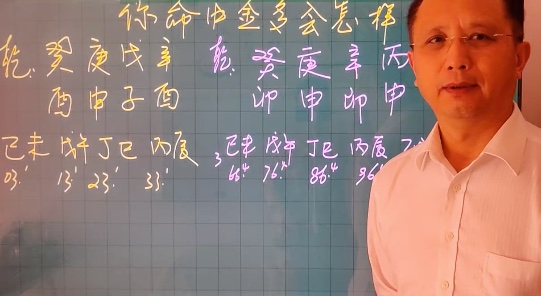 你命中金多会怎样
乾: 癸 庚 戊 辛 乾: 癸 庚 辛 丙
酉 申 子 酉 卯 申 卯 申
己未 戊午 丁巳 丙辰 3 己未 戊午 丁巳 丙辰
03.1 13.1 23.1 33.1 66.4 76.4 86.4 96.4